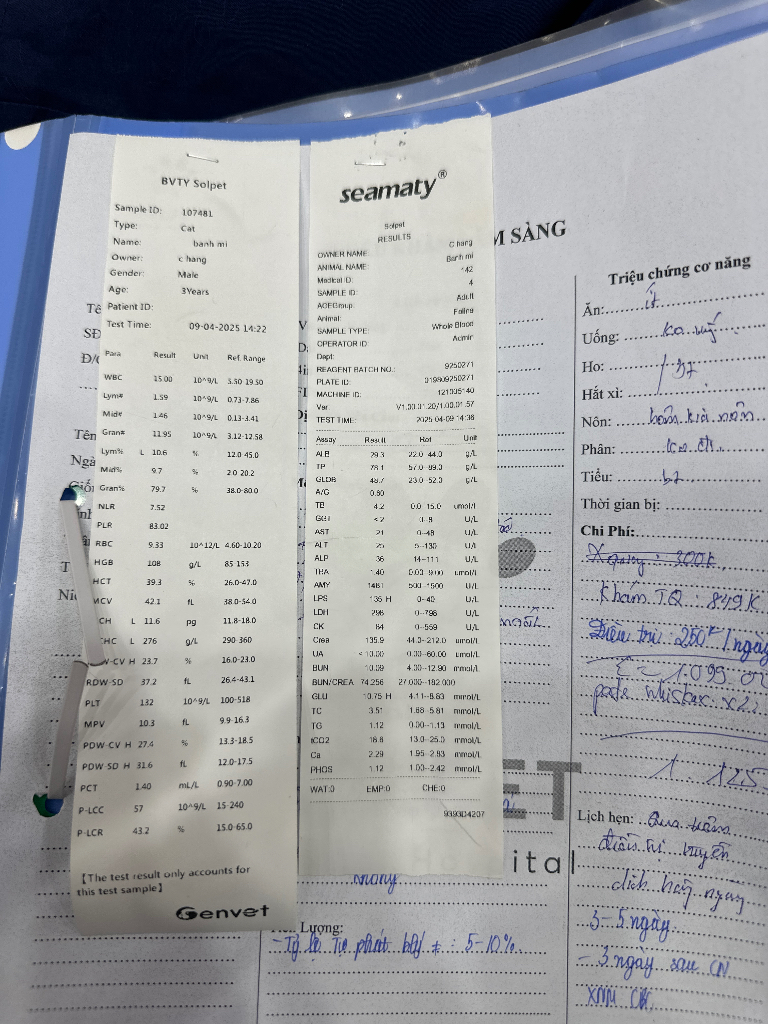 BVTY Solpet
Sample ID: 107481
Type: Cat
Name: banh mi
Owner: c hang
Gender: Male
Age: 3Years
Patient ID:
Test Time: 09-04-2025 14:22
Para Result Unit Ref. Range
WBC 15.00 10^9/L 5.50-19.50
Lym# 1.59 10^9/L 0.73-7.86
Mid# 1.46 10^9/L 0.13-3.41
Gran# 11.95 10^9/L 3.12-12.58
Lym% L 10.6 % 12.0-45.0
Mid% 9.7 % 2.0-20.2
Gran% 79.7 % 38.0-80.0
NLR 7.52
PLR 83.02
RBC 9.33 10^12/L 4.60-10.20
HGB 108 g/L 85-153
HCT 39.3 % 26.0-47.0
MCV 42.1 fL 38.0-54.0
CH L 11.6 pg 11.8-18.0
HC L 276 g/L 290-360
W-CV H 23.7 % 16.0-23.0
RDW-SD 37.2 fL 26.4-43.1
PLT 132 10^9/L 100-518
MPV 10.3 fL 9.9-16.3
PDW-CV H 27.4 % 13.3-18.5
PDW-SD H 31.6 fL 12.0-17.5
PCT 1.40 mL/L 0.90-7.00
P-LCC 57 10^9/L 15-240
P-LCR 43.2 % 15.0-65.0
【The test result only accounts for
this test sample】
Genvet
seamaty®
Solpet
RESULTS
OWNER NAME: C hang
ANIMAL NAME: Banh mi
Medical ID: 142
SAMPLE ID: 4
AGEGroup: Adult
Animal: Feline
SAMPLE TYPE: Whole Blood
OPERATOR ID: Admin
Dept:
REAGENT BATCH NO.: 9250271
PLATE ID: 019809250271
MACHINE ID: 121005140
Ver V1.00.01.20/1.00.01.57
TEST TIME: 2025-04-09 14:38
Assay Result Ref Unit
ALB 29.3 22.0-44.0 g/L
TP 78.1 57.0-89.0 g/L
GLOB 48.7 23.0-52.0 g/L
A/G 0.60
TB 4.2 0.0-15.0 umol/l
GGT <2 0-8 U/L
AST 21 0-48 U/L
ALT 25 5-130 U/L
ALP 36 14-111 U/L
TBA 1.40 0.00-9.00 umol/L
AMY 1481 500-1500 U/L
LPS 135 H 0-40 U/L
LDH 296 0-798 U/L
CK 84 0-559 U/L
Crea 135.9 44.0-212.0 umol/L
UA <10.00 0.00-60.00 umol/L
BUN 10.09 4.00-12.90 mmol/L
BUN/CREA 74.256 27.000-182.000
GLU 10.75 H 4.11-8.83 mmol/L
TC 3.51 1.68-5.81 mmol/L
TG 1.12 0.00-1.13 mmol/L
tCO2 18.8 13.0-25.0 mmol/L
Ca 2.29 1.95-2.83 mmol/L
PHOS 1.12 1.00-2.42 mmol/L
WAT:0 EMP:0 CHE:0
9393D4207
M SÀNG
ital
Lượng:
5-10%
Triệu chứng cơ năng
Ăn: ít
Uống:
Ho:
Hắt xì:
Nôn:
Phân:
Tiểu: bt
Thời gian bị:
Chi Phí:
Xquang: 300K
Khám TQ: 849K
Điều trị: 250K/ngày
pate whisker x2
Lịch hẹn:
điều trị truyền
dịch hằng ngày
3-5 ngày
- 3 ngày sau CN